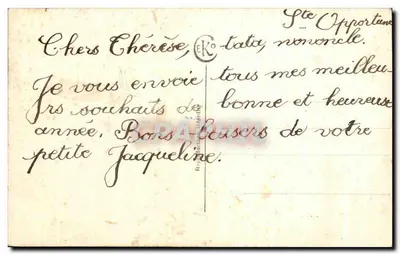 Ste Opportune
Chers Thérèse, tata, nononcle.
CEKO
Je vous envoie tous mes meilleu-
rs souhaits de bonne et heureuse
année. Bons baisers de votre
petite Jacqueline.